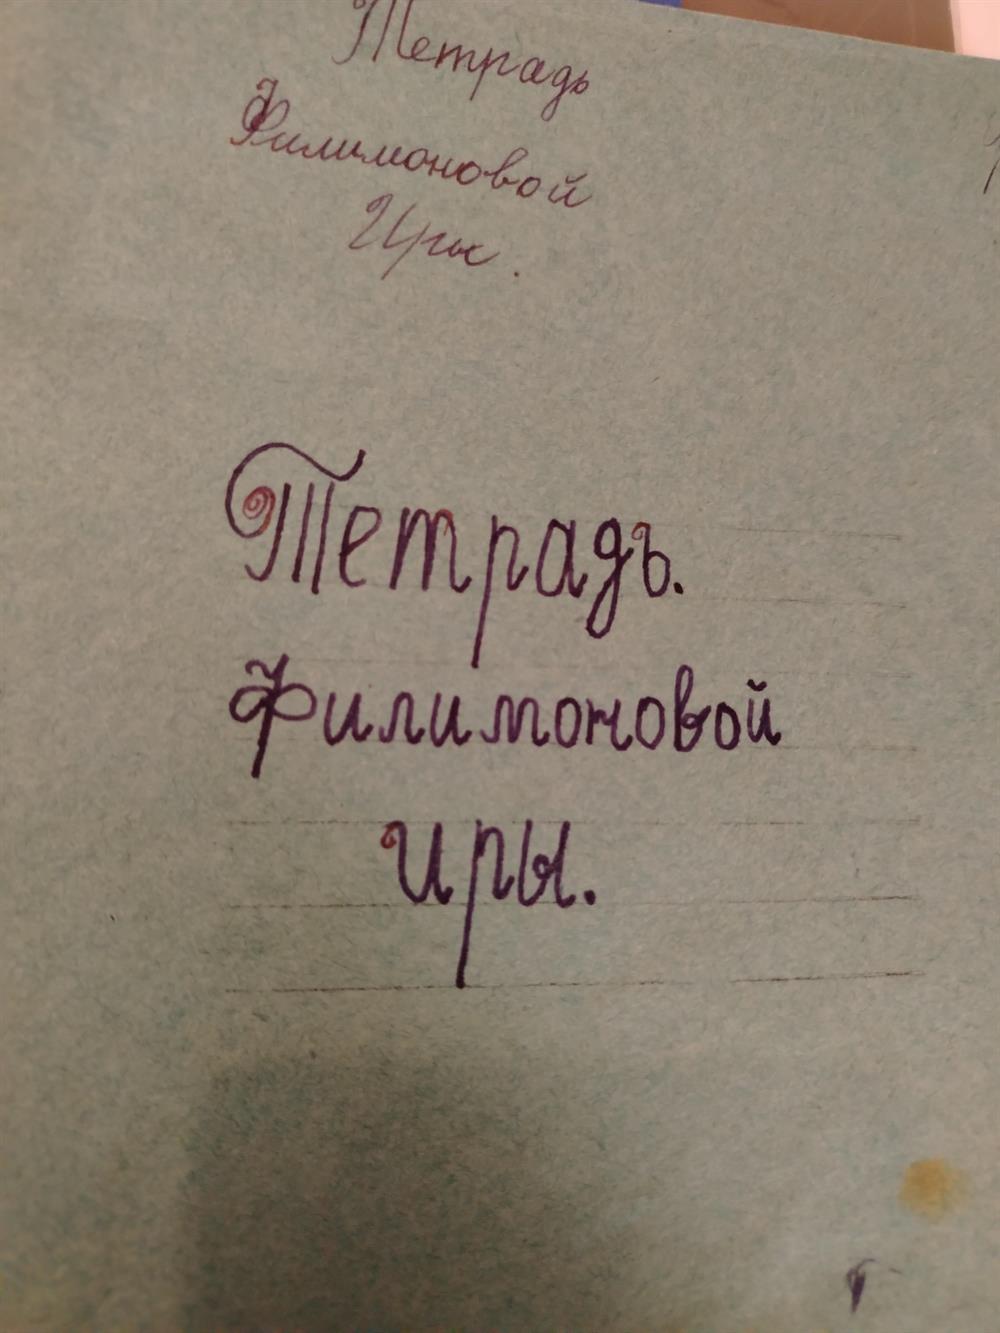 Тетрадь
Филимоновой
Иры.
Тетрадь.
Филимоновой
Иры.